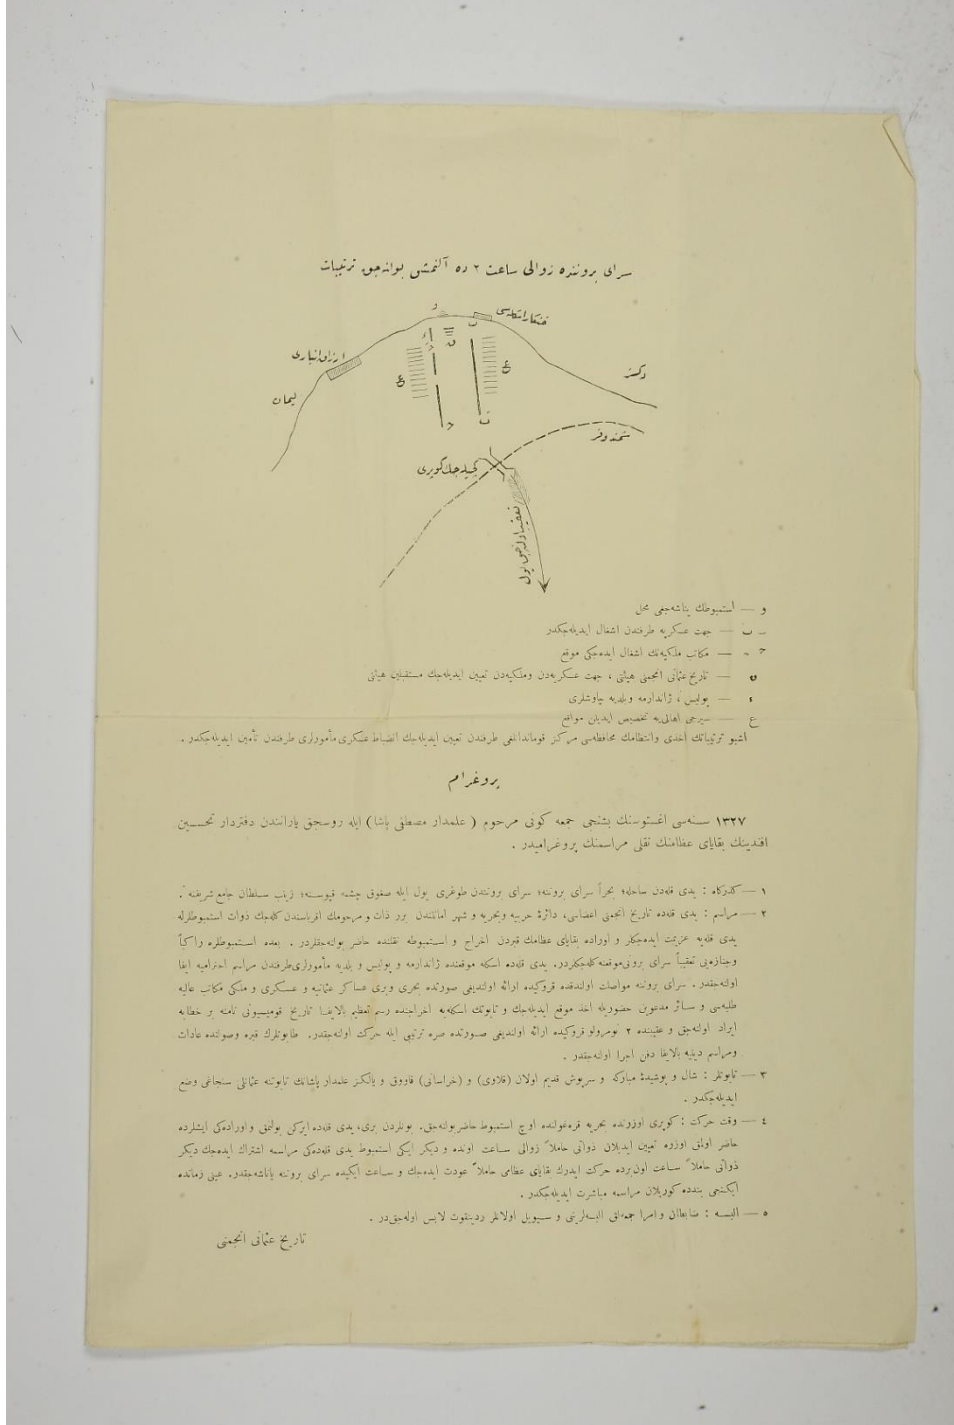 سرای بروننده زوالی ساعت ٢ ده آلنمش بولنه‌جق ترتیبات
و
خنكار اسكله‌سی
ب
ء
ن
ارزاق انباری
ع
ع
دكز
لیمان
ب
شمندوفر
كچیله‌جك كوپری
تعقیب اوله‌جق یول
و — استمبوطك یناشه‌جغی محل
ب — جهت عسكریه طرفندن اشغال ایدیله‌جكدر
— مكاتب ملكیه‌نك اشغال ایده‌جكی موقع
ن — تاریخ عثمانی انجمنی هیئتی ، جهت عسكریه‌دن وملكیه‌دن تعیین ایدیله‌جك مستقبلین هیئتی
ء — پولیس ، ژاندارمه وبلدیه چاوشلری
ع — سیرجی اهالی‌یه تخصیص ایدیلن مواقع
اشبو ترتیباتك اخذی وانتظامك محافظه‌سی مركز قوماندانلغی طرفندن تعیین ایدیله‌جك انضباط عسكری مأمورلری طرفندن تأمین ایدیله‌جكدر .
پروغرام
١٣٢٧ سنه‌سی اغستوسنك بشنجی جمعه كونی مرحوم ( علمدار مصطفی پاشا ) ایله روسجق یارانندن دفتردار تحسین
افندینك بقایای عظامنك نقلی مراسمنك پروغرامیدر .
١ — كذركاه : یدی قله‌دن ساحله؛ بحراً سرای بروننه؛ سرای بروتندن طوغری یول ایله صغوق چشمه قپوسنه؛ زینب سلطان جامع شریفنه .
٢ — مراسم : یدی قله‌ده تاریخ انجمنی اعضاسی، دائرهٔ حربیه وبحریه و شهر امانتندن برر ذات و مرحومك اقرباسندن كله‌جك ذوات استمبوطلرله
یدی قله‌یه عزیمت ایده‌جكلر و اوراده بقایای عظامك قبردن اخراج و استمبوطه نقلنده حاضر بولنه‌جقلردر . بعده استمبوطلره راكباً
وجنازه‌یی تعقیباً سرای برونی موقعنه كله‌جكلردر. یدی قله‌ده اسكله موقعنده ژاندارمه و پولیس و بلدیه مأمورلری طرفندن مراسم احترامیه ایفا
اولنه‌جقدر . سرای بروننه مواصلت اولندقده قروكیده ارائه اولندیغی صورتده بحری وبری عساكر عثمانیه و عسكری و ملكی مكاتب عالیه
طلبه‌سی و سائر مدعوین حضوریله اخذ موقع ایدیله‌جك و تابوتك اسكله‌یه اخراجنده رسم تعظیم بالایفا تاریخ قومیسیونی نامنه بر خطابه
ایراد اولنه‌جق و عقیبنده ٢ نومرولو قروكیده ارائه اولندیغی صورتده صره ترتیبی ایله حركت اولنه‌جقدر. طابوتلرك قبره وصولنده عادات
ومراسم دینیه بالایفا دفن اجرا اولنه‌جقدر .
٣ — تابوتلر : شال و پوشیدهٔ مباركه و سرپوش قدیم اولان (قلاوی) و (خراسانی) قاووق و یالكز علمدار پاشانك تابوتنه عثمانلی سنجاغی وضع
ایدیله‌جكدر .
٤ — وقت حركت : كوپری اوزرنده بحریه قره‌غولنده اوچ استمبوط حاضر بولنه‌جق. بونلردن بری، یدی قله‌ده ایركن بولنمق و اوراده‌كی ایشلرده
حاضر اولمق اوزره تعیین ایدیلان ذواتی حاملاً زوالی ساعت اونده و دیكر ایكی استمبوط یدی قله‌ده‌كی مراسمه اشتراك ایده‌جك دیكر
ذواتی حاملاً ساعت اون برده حركت ایدرك بقایای عظامی حاملاً عودت ایده‌جك و ساعت ایكیده سرای بروننه یاناشه‌جقدر. عینی زمانده
ایكنجی بندده كوریلان مراسمه مباشرت ایدیله‌جكدر .
٥ — البسه : ضابطان و امرا جمعه‌لق البسه‌لرینی و سیویل اولانلر ردینغوت لابس اوله‌جقدر .
تاریخ عثمانی انجمنی